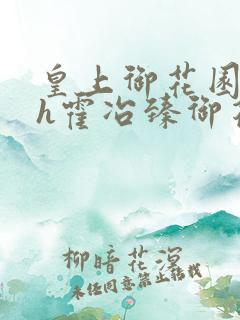 皇上御花园
h霍冶臻御花
柳暗花溟
未经同意禁止转载